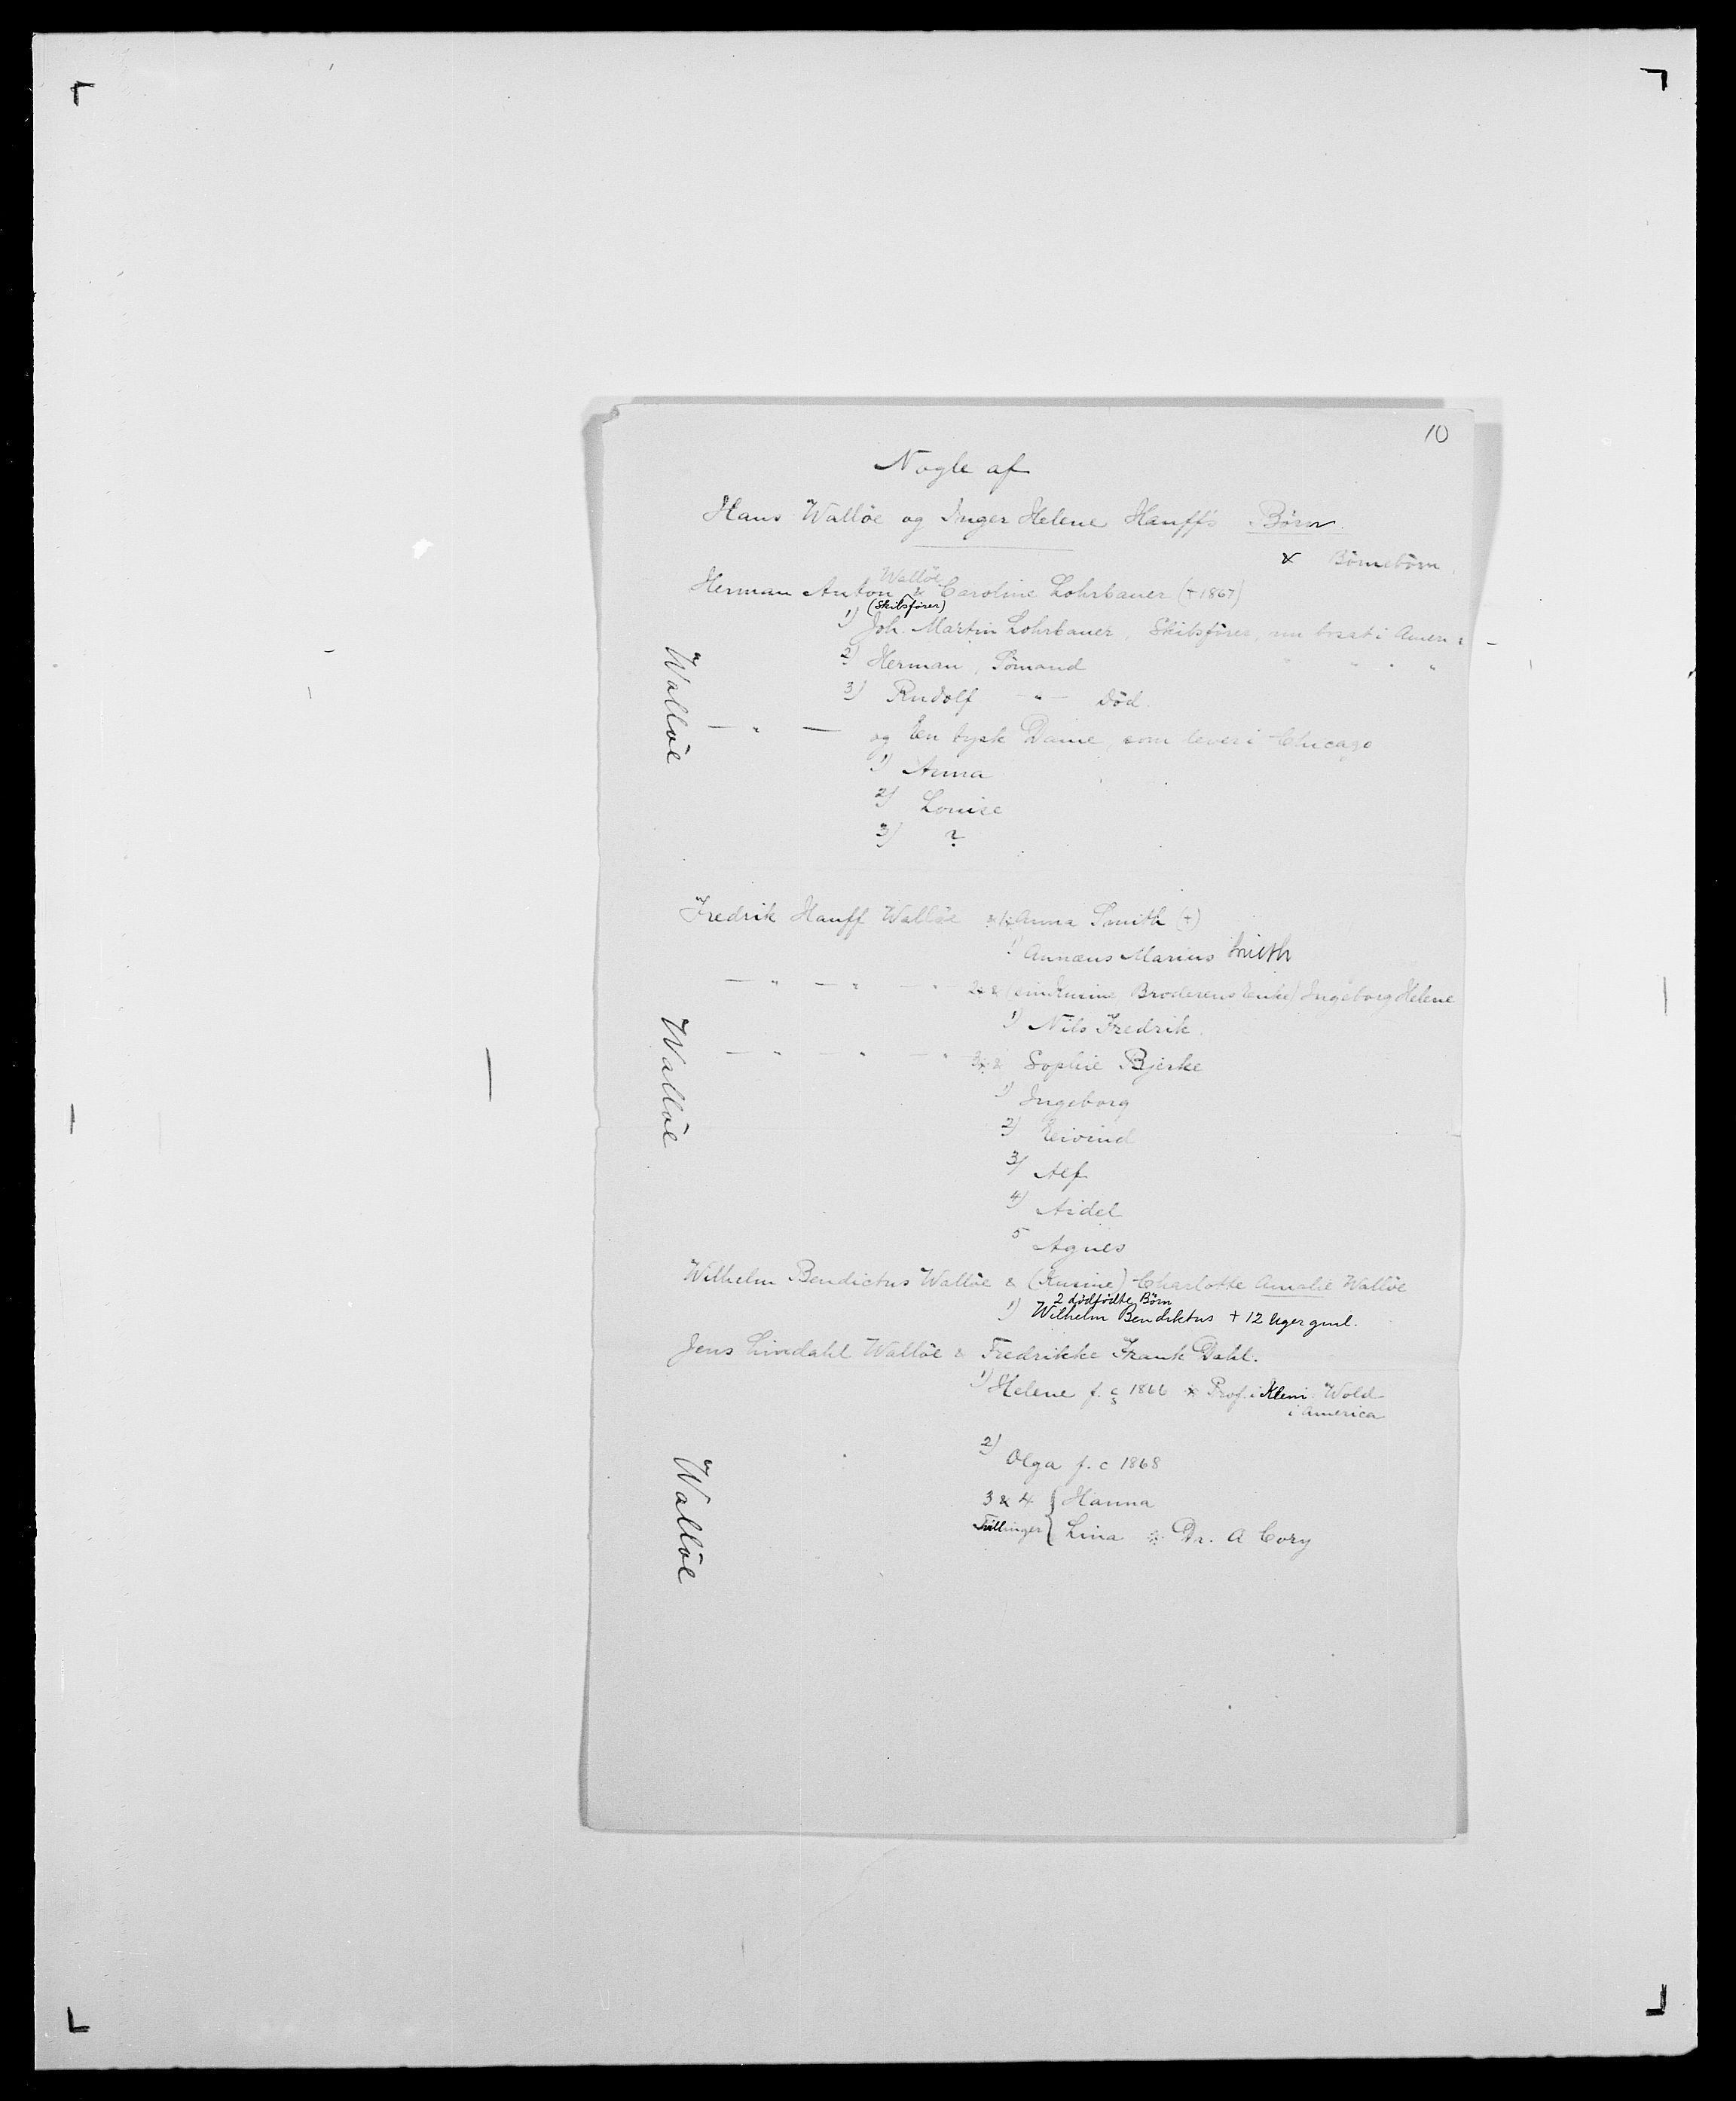 10
Nogle af
Hans Wallöe og Inger Helene Hauff's Börn
& Börnebörn
Wallöe
Herman Anton & Caroline Lohrbauer († 1867)
(Skibsförer)
1) Joh. Martin Lohrbauer, Skibsförer, nu bosat i Amer
2) Herman, Sömand " " " "
3) Rudolf — " — död.
Wallöe
— " — og En tysk Dame, som lever i Chicago
1) Anna
2) Louise
3) ?
Fredrik Hauff Wallöe Anna Smith (†)
1) Annæus Marius Smith
— " — " — " — 2 & (sin Kusine, Broderens Enke) Ingeborg Helene
1) Nils Fredrik.
— " — " — " — 3 & Sophie Bjerke
Wallöe
1) Ingeborg
2) Eivind
3) Alf
4) Aidel
5 Agnes
Wilhelm Bendictus Wallöe & (Kusine) Charlotte Amalie Wallöe
2 dödfödte Börn
1) Wilhelm Bendiktus † 12 Uger gml.
Jens Lindahl Wallöe & Fredrikke Frank Dahl.
1) Helene f. c 1866 & Prof. i Kemi Wold
i America
2) Olga f. c 1868
Wallöe
3 & 4 { Hanna
Tvillinger { Lina Dr. A Cory